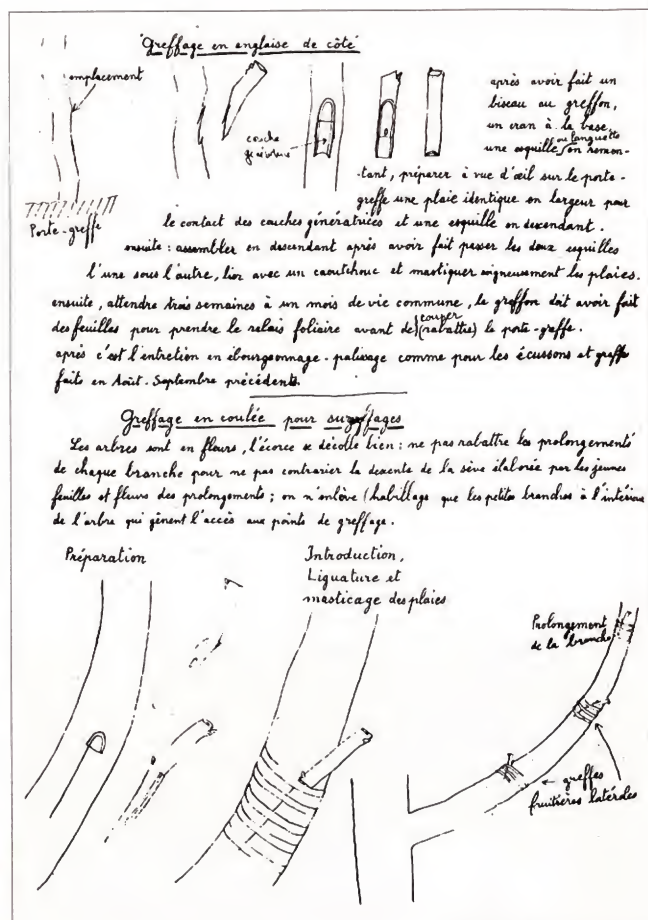 Greffage en anglaise de côté
emplacement
couche
génératrice
Porte-greffe
après avoir fait un
biseau au greffon,
un cran à la base,
ou languette
une esquille en remon-
tant, préparer à vue d'œil sur le porte-
greffe une plaie identique en largeur pour
le contact des couches génératrices et une esquille en descendant.
ensuite : assembler en descendant après avoir fait passer les deux esquilles
l'une sous l'autre, lier avec un caoutchouc et mastiquer soigneusement les plaies.
ensuite, attendre trois semaines à un mois de vie commune, le greffon doit avoir fait
couper
des feuilles pour prendre le relais foliaire avant de (rabattre) le porte-greffe.
après c'est l'entretien en ébourgeonnage - palissage comme pour les écussons et greffe
faits en Août - Septembre précédents.
Greffage en coulée pour surgreffages
Les arbres sont en fleurs, l'écorce se décolle bien : ne pas rabattre les prolongements
de chaque branche pour ne pas contrarier la descente de la sève élaborée par les jeunes
feuilles et fleurs des prolongements ; on n'enlève (habillage que les petites branches à l'intérieur
de l'arbre qui gênent l'accès aux points de greffage.
Préparation
Introduction,
Liguature et
masticage des plaies
Prolongement
de la branche
← greffes
fruitières latérales